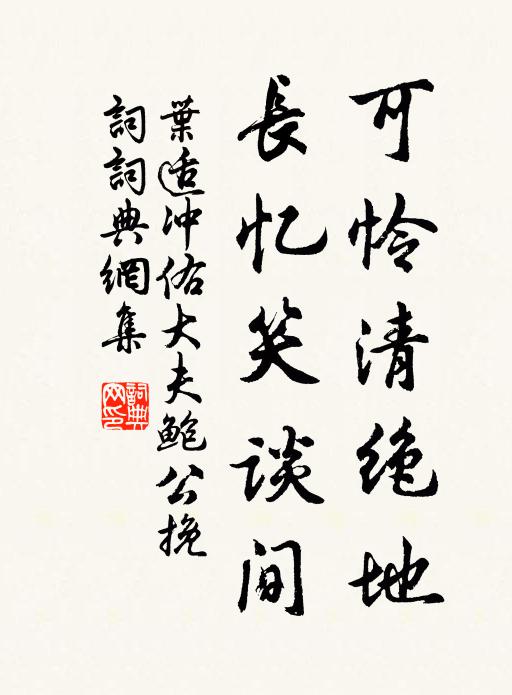 可怜清绝地
長忆笑谈间
葉适冲佑大夫鲍公挽
詞詞典網集
詞典
网印